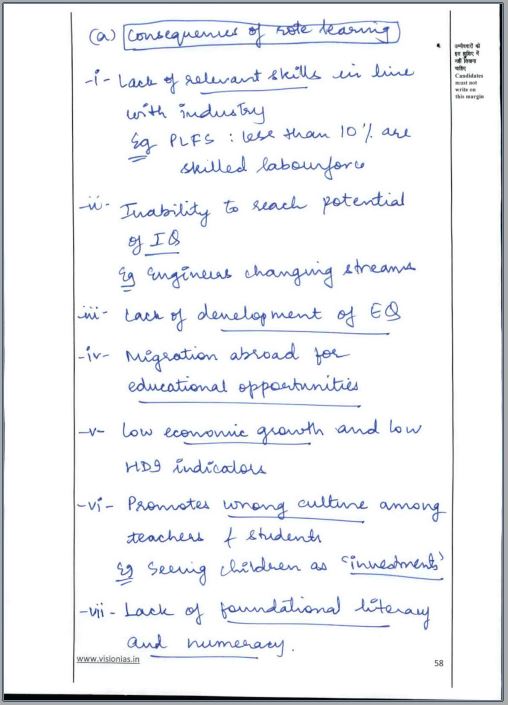 (a) Consequences of rote learning
-i- Lack of relevant skills in line
with industry
Eg PLFS : less than 10% are
skilled labourforce
-ii- Inability to reach potential
of IQ
Eg Engineers changing streams
-iii- Lack of development of EQ
-iv- Migration abroad for
educational opportunities
-v- Low economic growth and low
HDI indicators
-vi- Promotes wrong culture among
teachers & students
Eg Seeing children as 'investments'
-vii- Lack of foundational literacy
and numeracy.
उम्मीदवारों को
इस हाशिए में
नहीं लिखना
चाहिए
Candidates
must not
write on
this margin
www.visionias.in
58